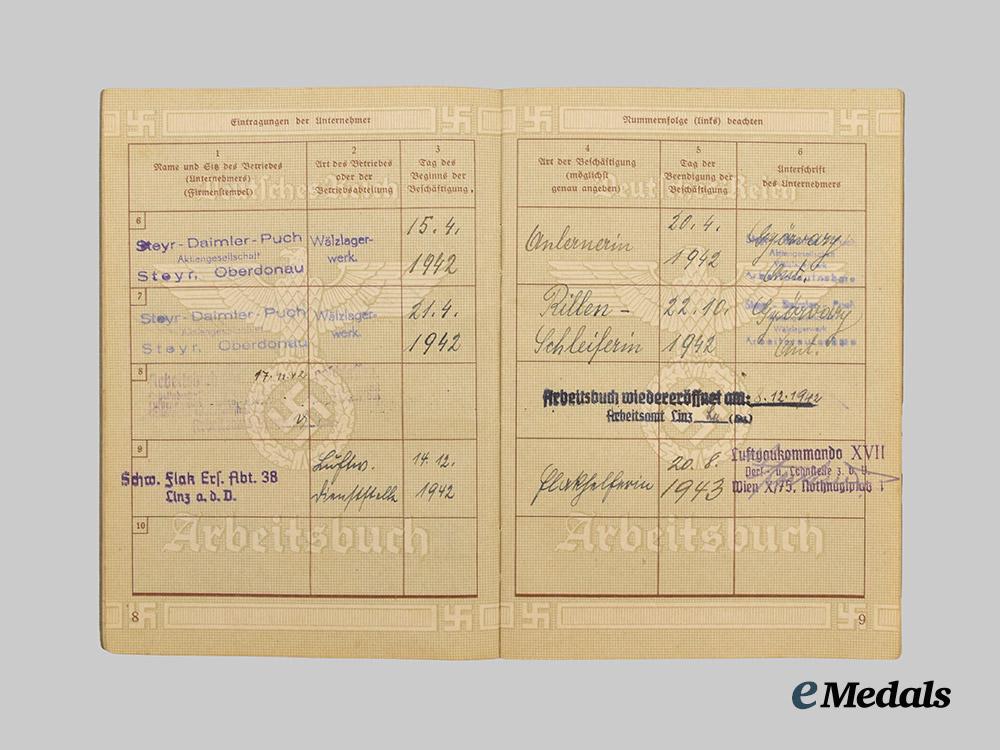 Eintragungen der Unternehmer
1
Name und Sitz des Betriebes
(Unternehmers)
(Firmenstempel)
2
Art des Betriebes
oder der
Betriebsabteilung
3
Tag des
Beginns der
Beschäftigung
6
Steyr-Daimler-Puch
Aktiengesellschaft
Steyr, Oberdonau
Wälzlager-
werk.
15.4.
1942
7
Steyr-Daimler-Puch
Aktiengesellschaft
Steyr, Oberdonau
Wälzlager-
werk.
21.4.
1942
8
17.11.42
9
Schw. Flak Ers. Abt. 38
Linz a.d.D.
Luftw.
Dienststelle
14.12.
1942
10
Deutsches Reich
Arbeitsbuch
8
Nummernfolge (links) beachten
4
Art der Beschäftigung
(möglichst
genau angeben)
5
Tag der
Beendigung der
Beschäftigung
6
Unterschrift
des Unternehmers
Anlernerin
20.4.
1942
Aktiengesellschaft
Rillen-
Schleiferin
22.10.
1942
Steyr-Daimler-Puch
Wälzlagerwerk
Arbeitsbuch wiedereröffnet am: 8.12.1942
Arbeitsamt Linz
Flakhelferin
20.8.
1943
Luftgaukommando XVII
Wien X/75, Nothnaglplatz 1
Deutsches Reich
Arbeitsbuch
9
eMedals